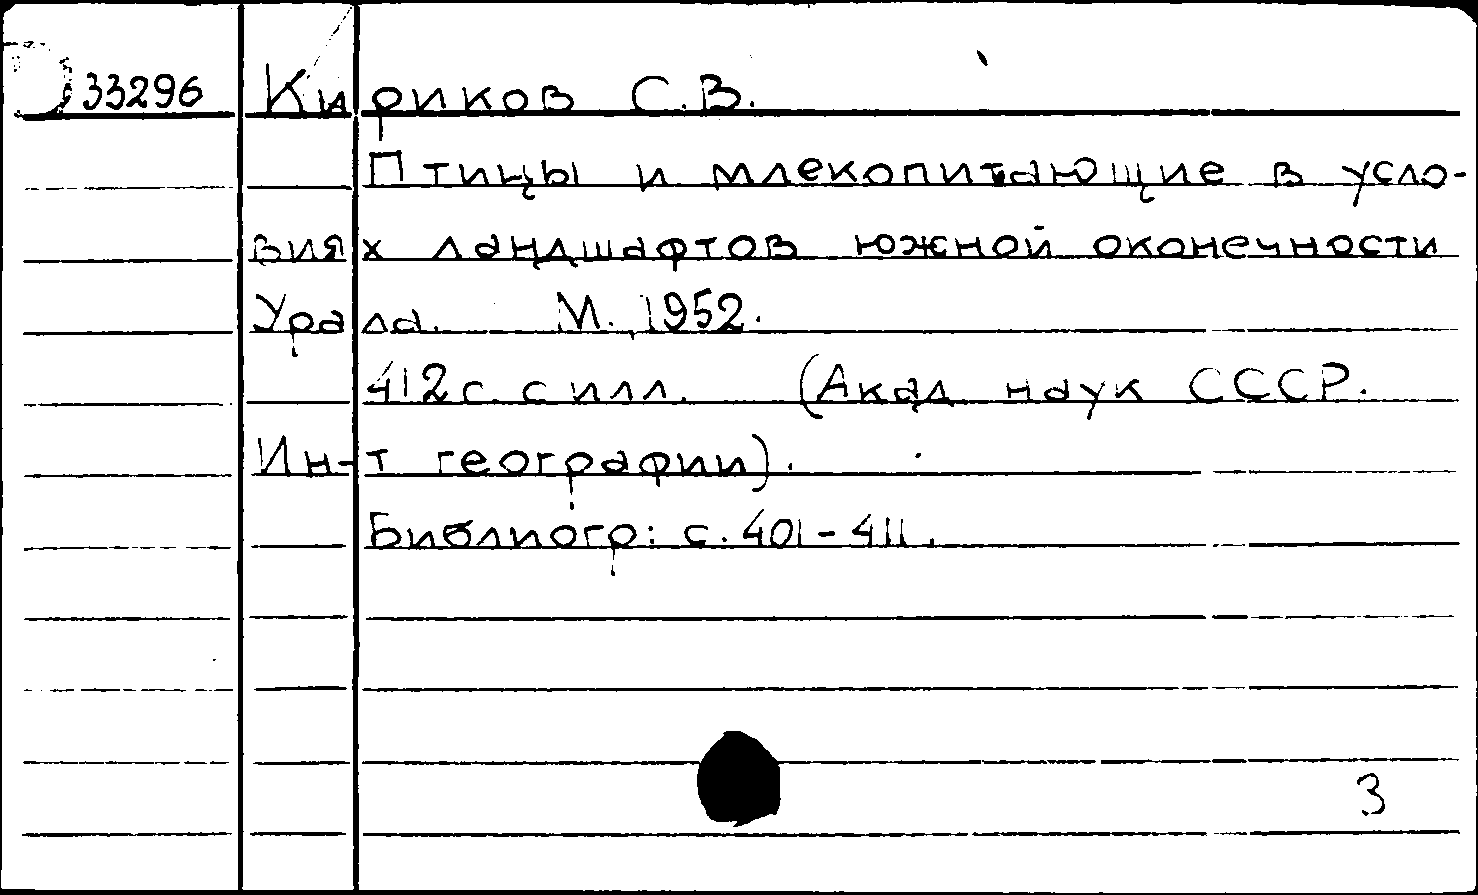 33296 Кириков С.В.
Птицы и млекопитающие в усло-
виях ландшафтов южной оконечности
Урала. М., 1952.
412 с. с илл. (Акад наук СССР.
Ин-т географии).
Библиогр: с. 401-411.
3